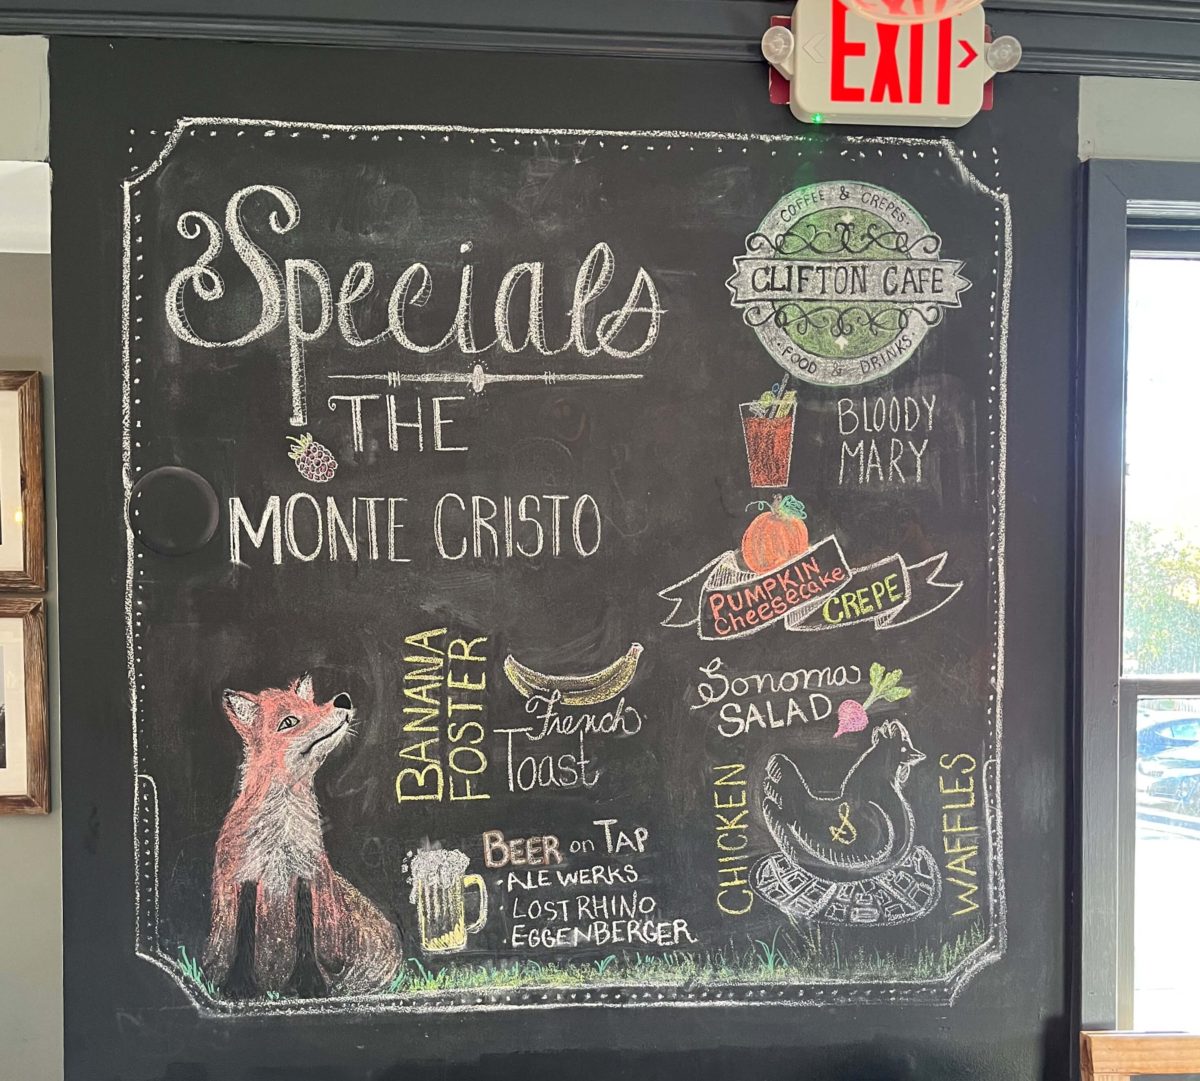 EXIT
Specials
THE
MONTE CRISTO
COFFEE & CREPES
CLIFTON CAFE
FOOD & DRINKS
BLOODY
MARY
PUMPKIN
Cheesecake
CREPE
BANANA
FOSTER
French
Toast
Sonoma
SALAD
CHICKEN
&
WAFFLES
BEER on TAP
· ALE WERKS
· LOST RHINO
· EGGENBERGER